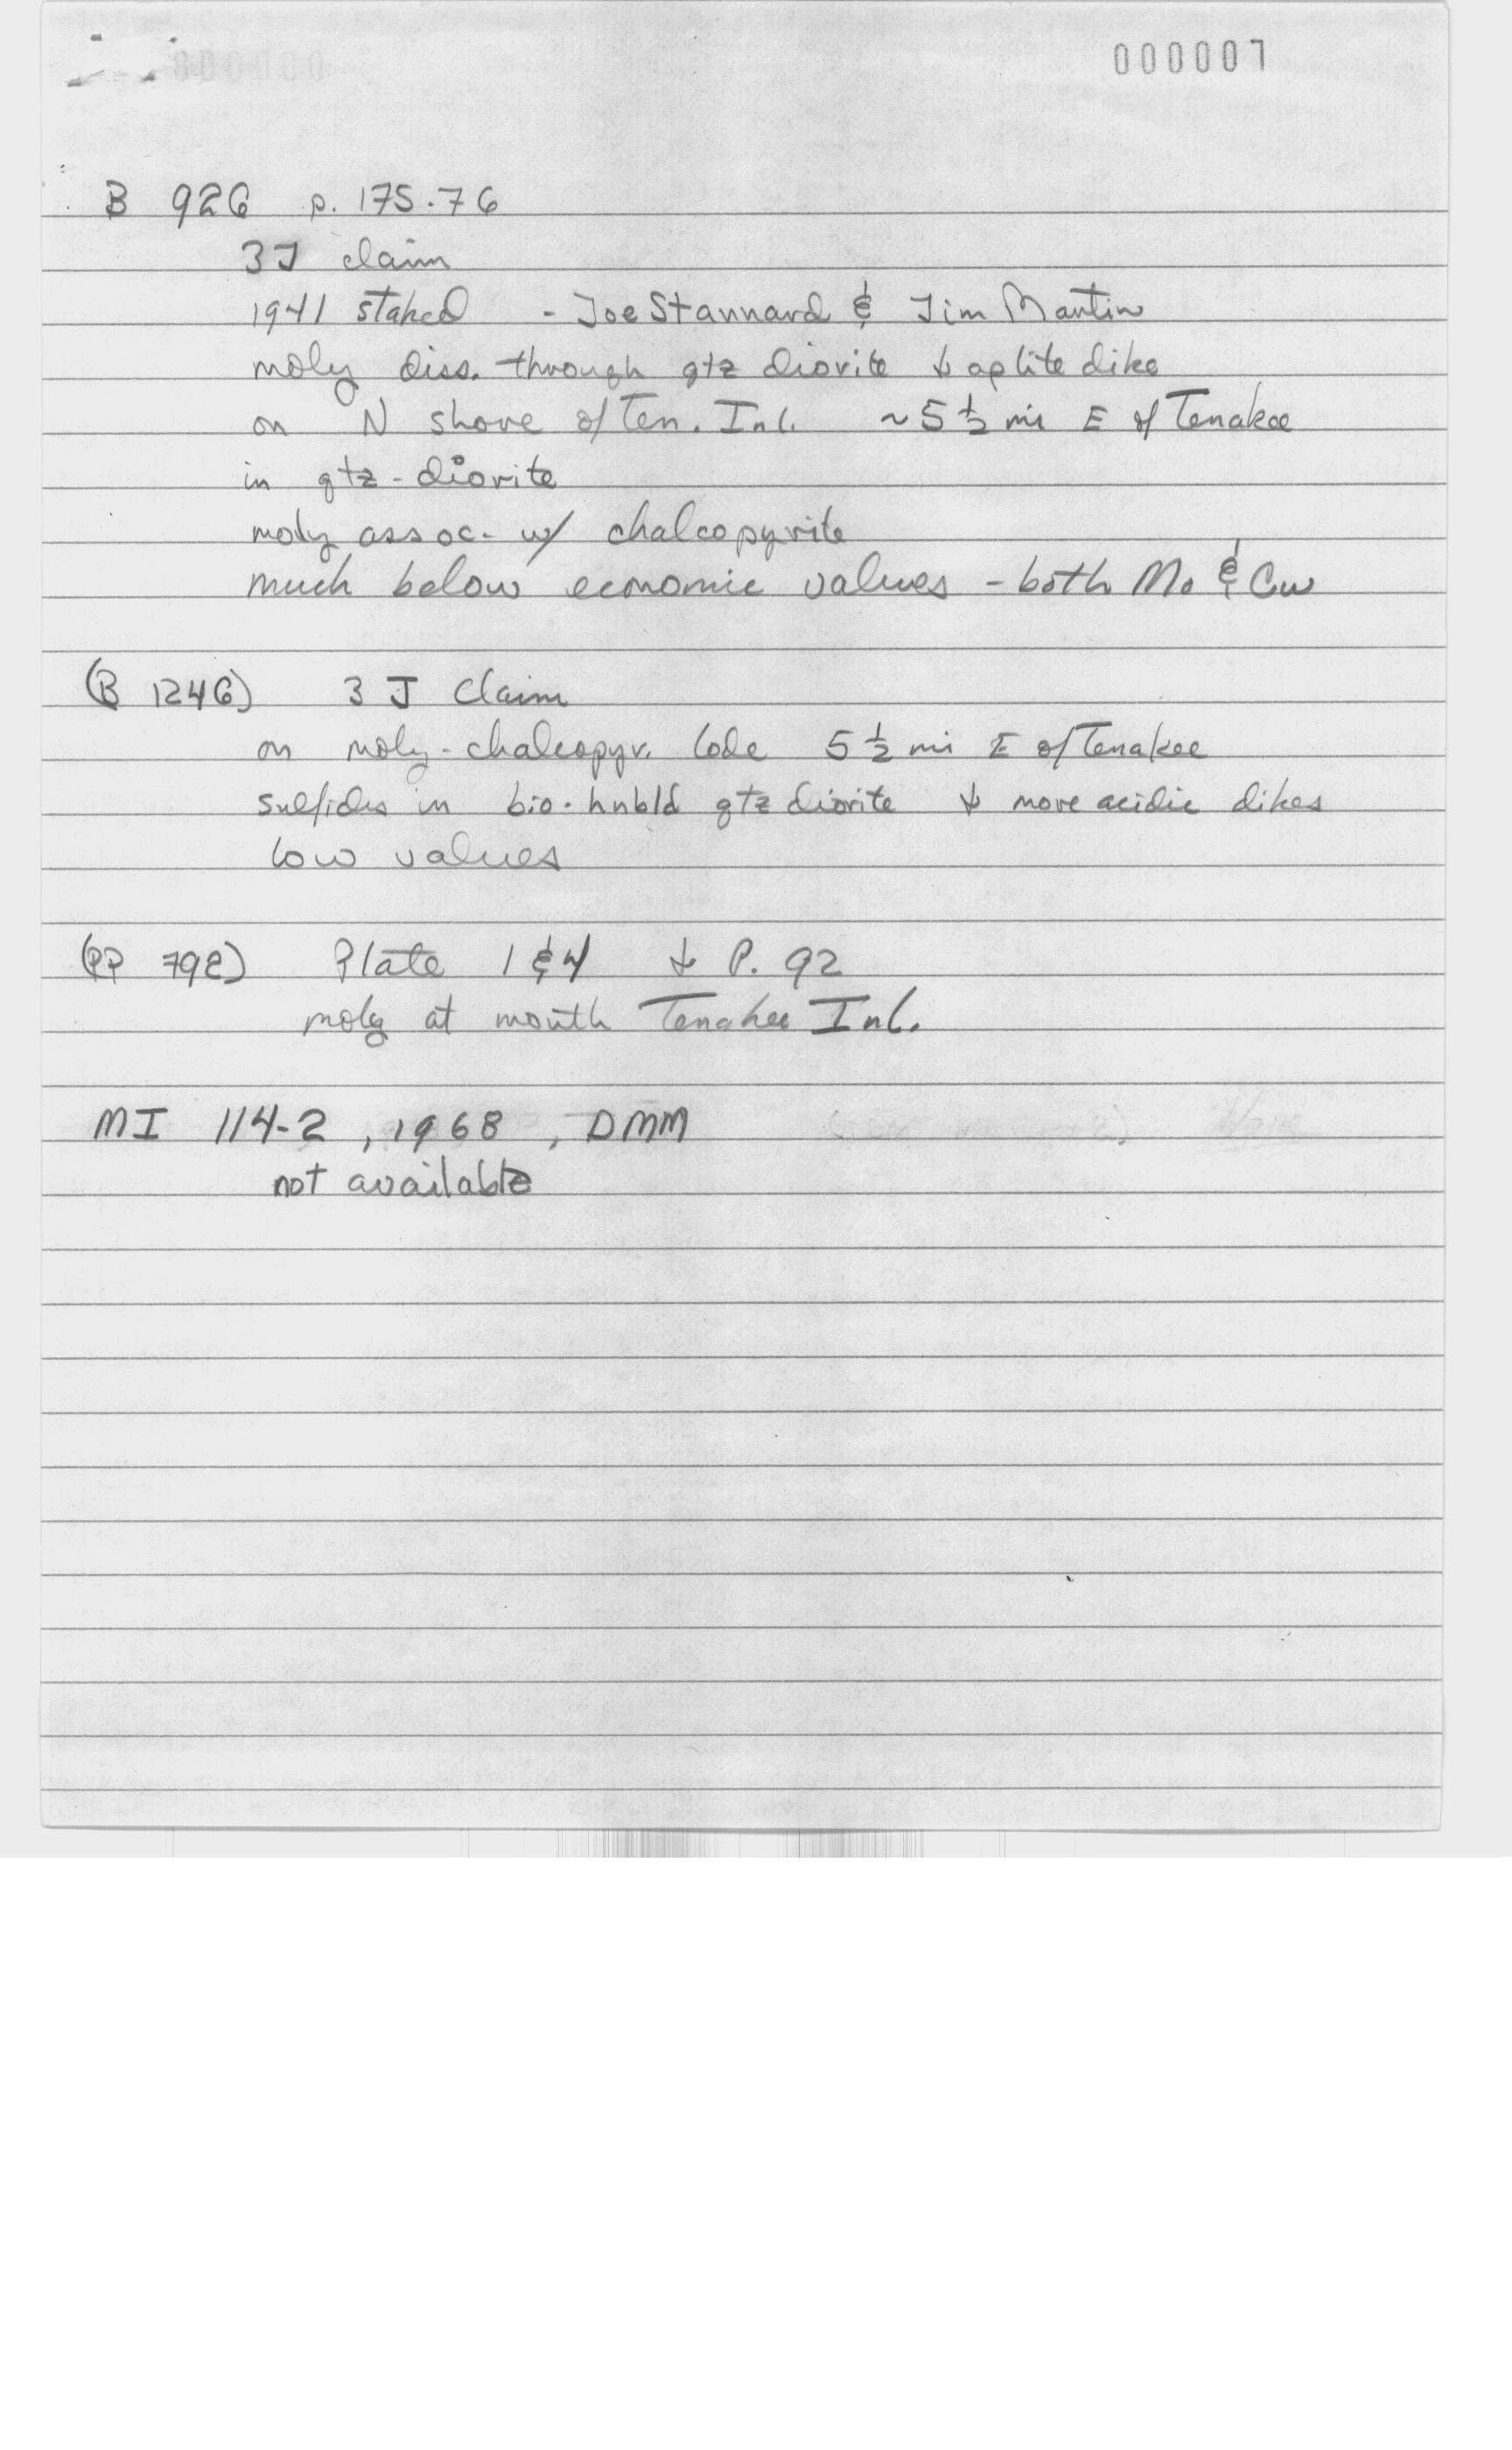 000007
B 926 p. 175-76
3J claim
1941 staked - Joe Stannard & Jim Martin
moly diss. through qtz diorite & aplite dike
on N shore of Ten. Inl. ~5 1/2 mi E of Tenakee
in qtz-diorite
moly assoc. w/ chalcopyrite
much below economic values - both Mo & Cu
(B 1246) 3 J Claim
on moly-chalcopyr. lode 5 1/2 mi E of Tenakee
sulfides in bio-hnbld qtz diorite & more acidic dikes
low values
(PP 792) Plate 1 & 4 & P. 92
moly at mouth Tenakee Inl.
MI 114-2, 1968, DMM
not available